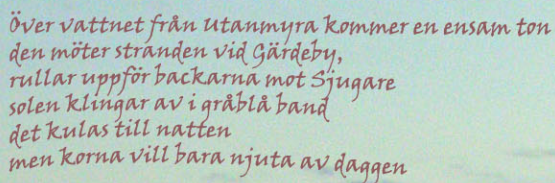 Över vattnet från Utanmyra kommer en ensam ton
den möter stranden vid Gärdeby,
rullar uppför backarna mot Sjugare
solen klingar av i gråblå band
det kulas till natten
men korna vill bara njuta av daggen